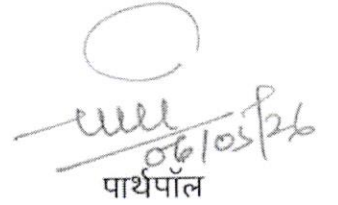 06/05/26
पार्थपॉल